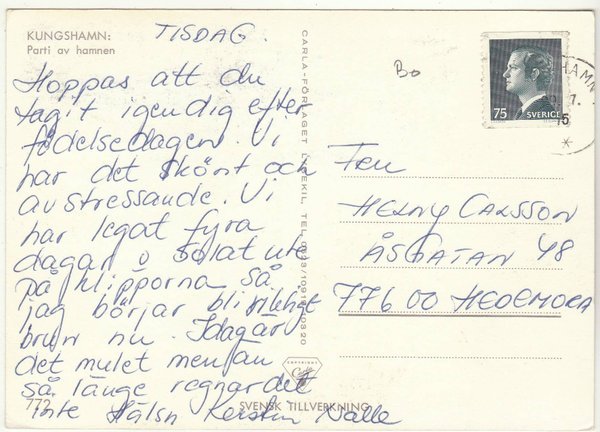 KUNGSHAMN:
Parti av hamnen
TISDAG.
Hoppas att du
tagit igendig efter
födelsedagen. Vi
har det skönt och
avstressande. Vi
har legat fyra
dagar o solat ute
på klipporna så
jag börjar bli riktigt
brun nu. Idag är
det mulet men än
så länge regnar det
inte Hälsn Kerstin Nalle
772
SVENSK TILLVERKNING
CARLA-FÖRLAGET LYSEKIL, TEL.
COPYRIGHT
Bo
75
SVERIGE
HAMN
7.
Fru
HENNY CARLSSON
ÅSGATAN 48
776 00 HEDEMORA